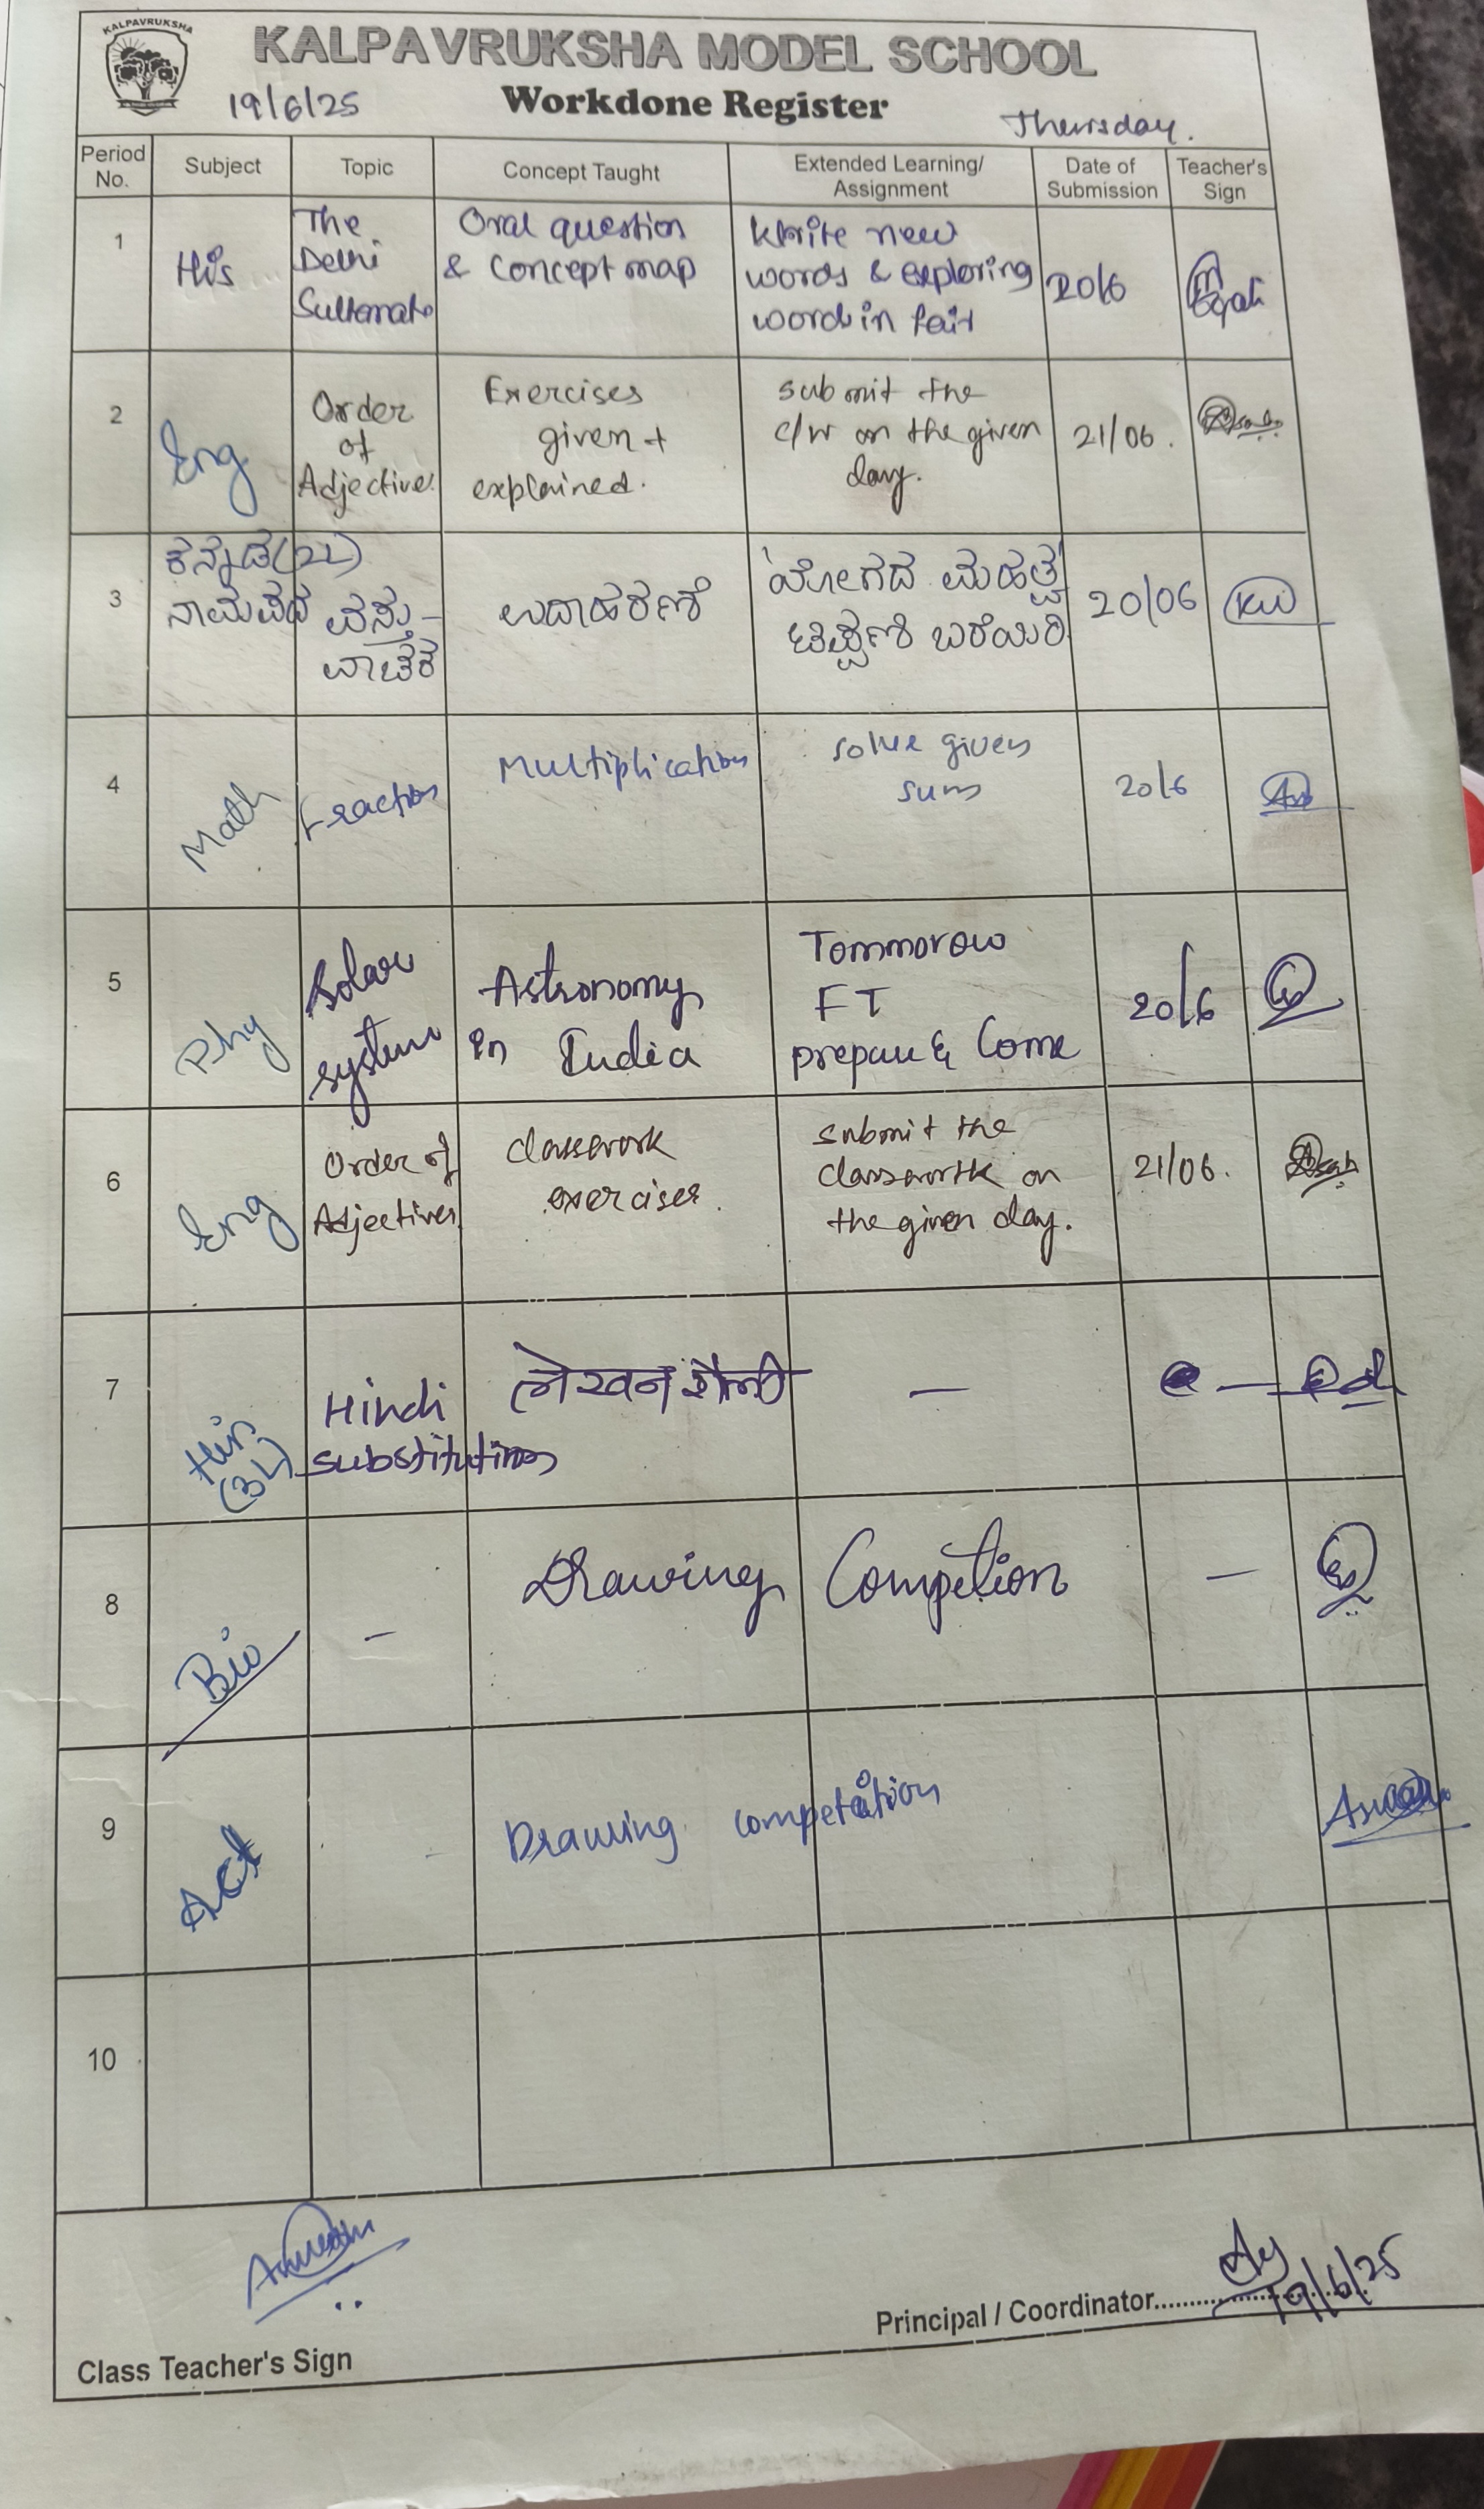 KALPAVRUKSHA
KALPAVRUKSHA MODEL SCHOOL
19/6/25 Workdone Register Thursday.
Period No. Subject Topic Concept Taught Extended Learning/ Assignment Date of Submission Teacher's Sign
1 His The Delhi Sultanate Oral question & Concept map Write new words & exploring words in fair 20/6
2 Eng Order of Adjectives Exercises given + explained. submit the c/w on the given day. 21/06.
3 ಕನ್ನಡ(2L) ನಾಮಪದ ವಸ್ತು- ವಾಚಕ ಉದಾಹರಣೆ 'ಯೋಗದ ಮಹತ್ವ' ಟಿಪ್ಪಣಿ ಬರೆಯಿರಿ 20/06 KW
4 Math Fraction Multiplication solve given sum 20/6
5 Phy Solar system Astronomy in India Tommorow FT prepare & Come 20/6
6 Eng Order of Adjectives classwork exercises. submit the classwork on the given day. 21/06.
7 Hin (3L) Hindi substitution लेखन शैली — —
8 Bio – Drawing Competion –
9 Act - Drawing competation
10
Class Teacher's Sign
Principal / Coordinator.......................... 19/6/25